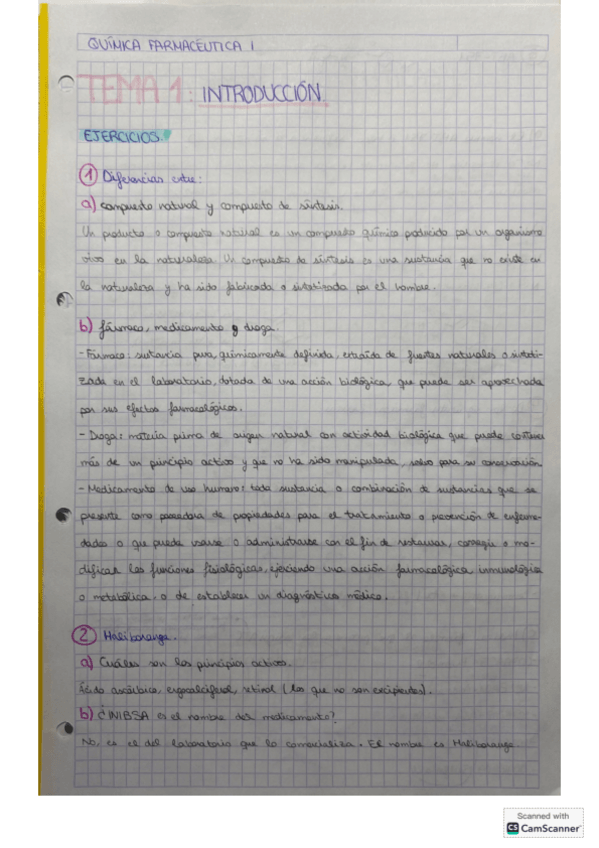 QUÍMICA FARMACÉUTICA I
TEMA 1: INTRODUCCIÓN
EJERCICIOS.
① Diferencias entre:
a) compuesto natural y compuesto de síntesis.
Un producto o compuesto natural es un compuesto químico producido por un organismo
vivo en la naturaleza. Un compuesto de síntesis es una sustancia que no existe en
la naturaleza y ha sido fabricada o sintetizada por el hombre.
b) fármaco, medicamento y droga.
- Fármaco: sustancia pura, químicamente definida, extraída de fuentes naturales o sinteti-
zada en el laboratorio, dotada de una acción biológica, que puede ser aprovechada
por sus efectos farmacológicos.
- Droga: materia prima de origen natural con actividad biológica que puede contener
más de un principio activo y que no ha sido manipulada, salvo para su conservación
- Medicamento de uso humano: toda sustancia o combinación de sustancias que se
presente como poseedora de propiedades para el tratamiento o prevención de enferme-
dades o que pueda usarse o administrarse con el fin de restaurar, corregir o mo-
dificar las funciones fisiológicas, ejerciendo una acción farmacológica, inmunológica
o metabólica, o de establecer un diagnóstico médico.
② Haliborange.
a) Cuáles son los principios activos.
Ácido ascórbico, ergocalciferol, retinol (los que no son excipientes).
b) ¿INIBSA es el nombre del medicamento?
No, es el del laboratorio que lo comercializa. El nombre es Haliborange
Scanned with
CS CamScanner